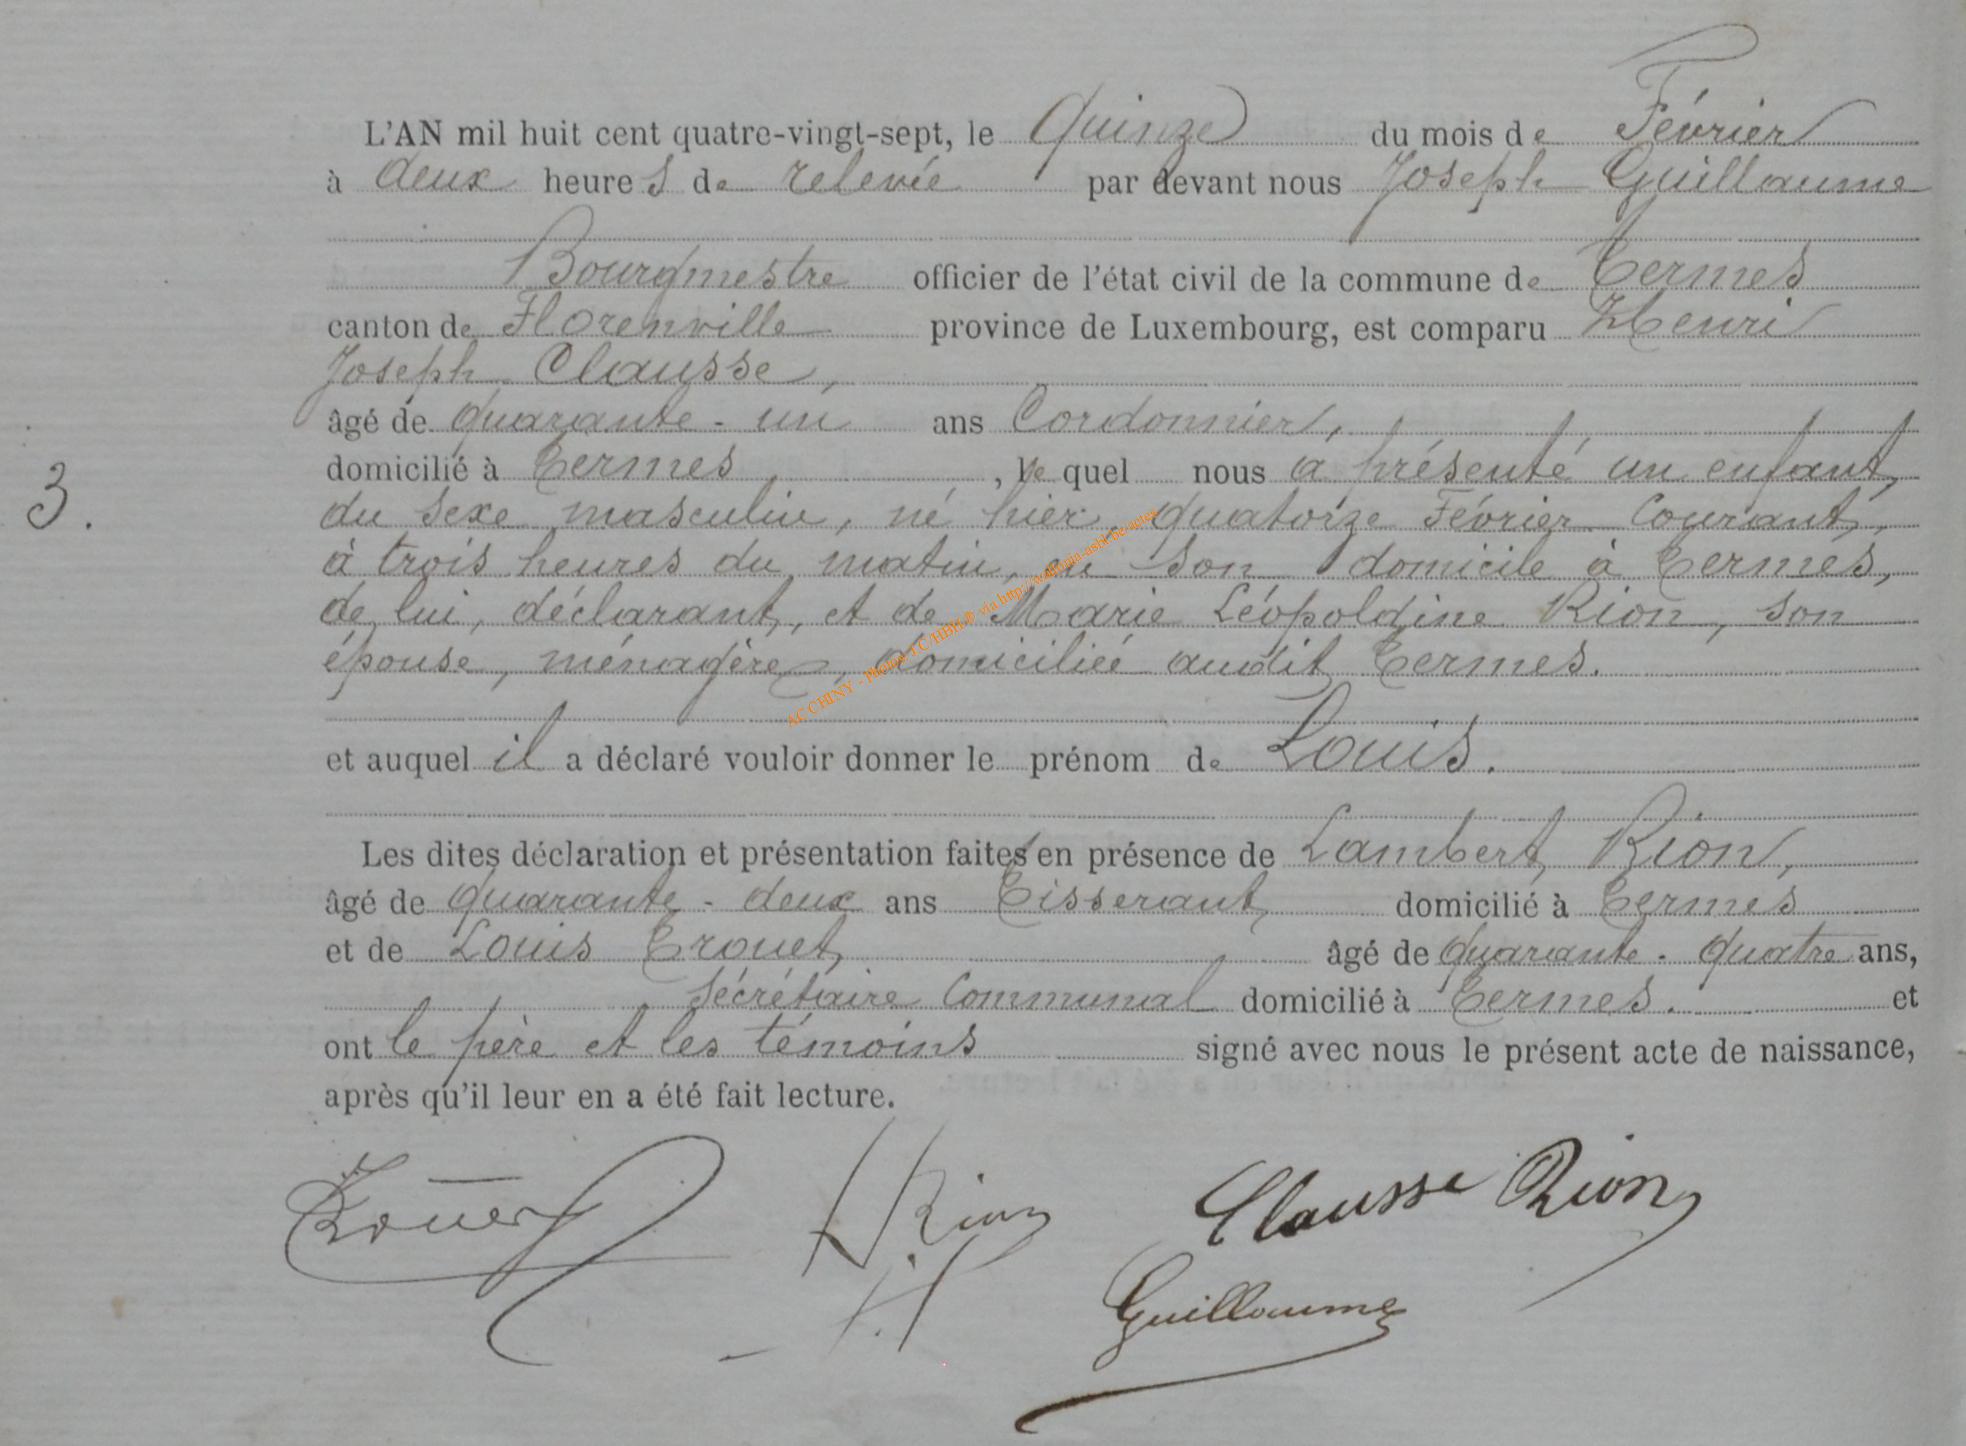 L'AN mil huit cent quatre-vingt-sept, le Quinze du mois de Février
à deux heures de relevée par devant nous Joseph Guillaume
Bourgmestre officier de l'état civil de la commune de Termes
canton de Florenville province de Luxembourg, est comparu Henri
Joseph Clausse,
âgé de quarante-un ans Cordonnier,
domicilié à Termes, le quel nous a présenté un enfant,
3. du sexe masculin, né hier, quatorze Février Courant,
à trois heures du matin, en son domicile à Termes,
de lui, déclarant, et de Marie Léopoldine Rion, son
épouse, ménagère, domiciliée audit Termes.
et auquel il a déclaré vouloir donner le prénom de Louis.
Les dites déclaration et présentation faites en présence de Lambert Rion,
âgé de quarante-deux ans Tisserant domicilié à Termes
et de Louis Trouet, âgé de quarante-quatre ans,
Sécrétaire Communal domicilié à Termes. et
ont le père et les témoins signé avec nous le présent acte de naissance,
après qu'il leur en a été fait lecture.
Rion Clausse Rion
Guillaume
AC CHINY - Photos TC/HBH ® via http://wallonia-asbl.be/actes